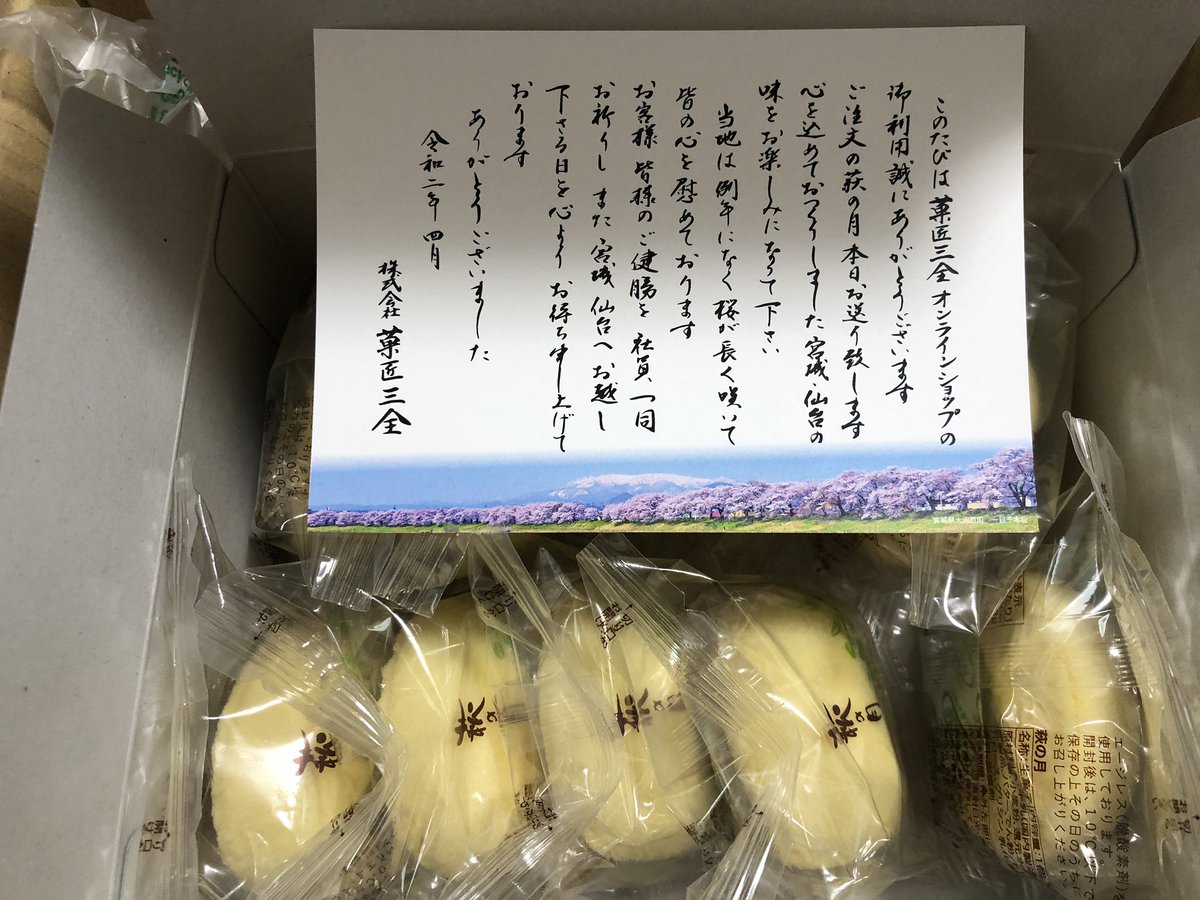 このたびは 菓匠三全 オンラインショップの
御利用誠にありがとうございます
ご注文の萩の月 本日お送り致します
心を込めておつくりしました宮城・仙台の
味をお楽しみになって下さい
当地は例年になく桜が長く咲いて
皆の心を慰めております
お客様 皆様のご健勝を 社員一同
お祈りし また 宮城 仙台へ お越し
下さる日を心より お待ち申し上げて
おります
ありがとうございました
令和二年 四月
株式会社 菓匠三全
宮城県大河原町 一目千本桜
萩
萩の
萩の
萩の月
エージレス(脱酸素剤)を
使用しております。
開封後は、10℃以下で
保存の上その日のうちに
お召し上がりください
萩の月